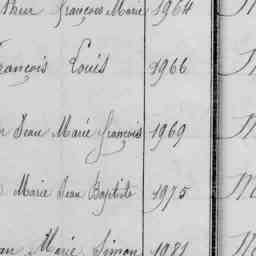 François Marie 1964
François Louis 1966
Jean Marie François 1969
Marie Jean Baptiste 1975
Marie Simon 1981